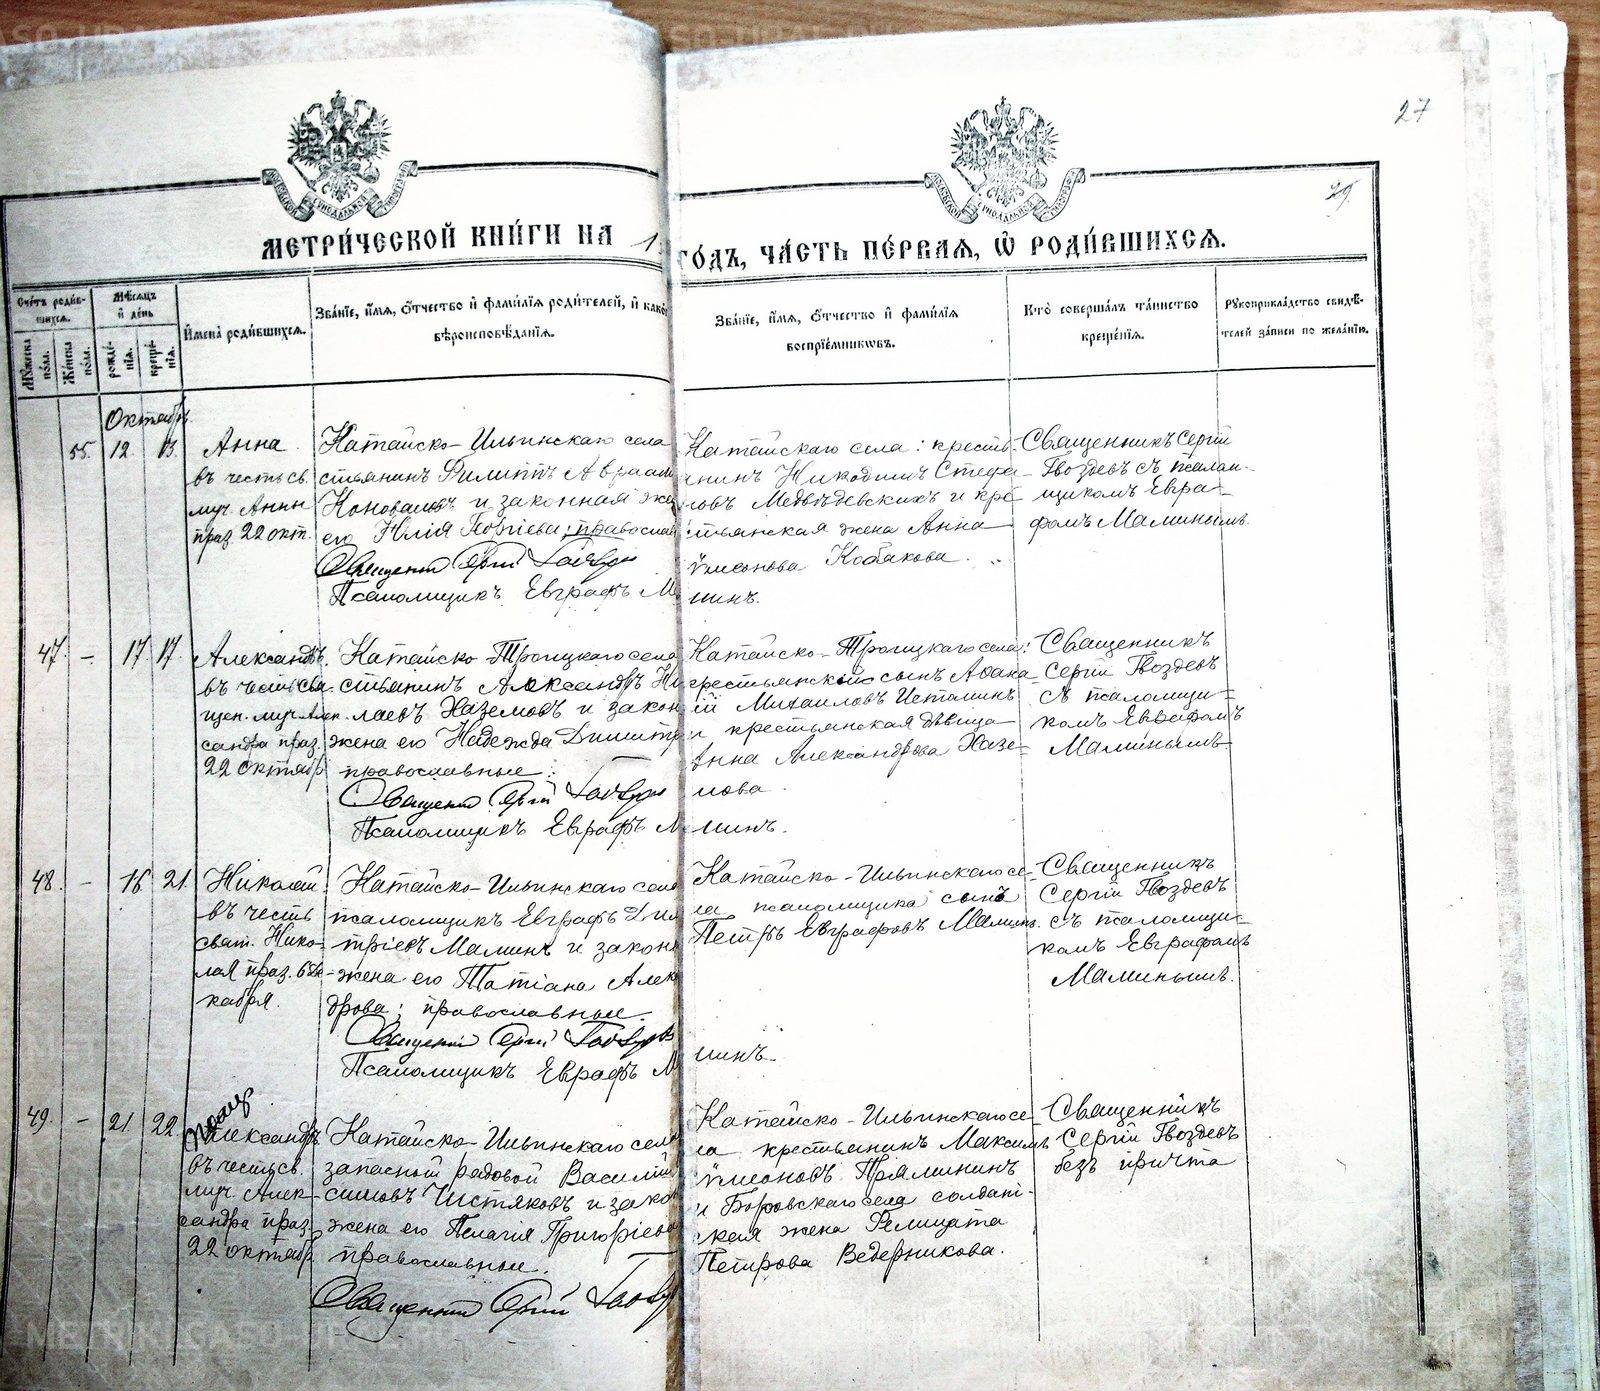 27
29
МЕТРИ́ЧЕСКОЙ КНИ́ГИ НА 1
ГОДЪ, ЧА́СТЬ ПЕ́РВАЯ, Ѿ РОДИ́ВШИХСЯ.
Сче́тъ роди́в-
шихся.
Мꙋ́жеска по́ла.
Же́нска по́ла.
Мѣ́сяцъ и҆ де́нь
рожде́-нїя.
креще́-нїя.
И҆мена̀ роди́вшихся.
Зва́нїе, и҆́мя, ѻ҆́тчество и҆ фами́лїя роди́телей, и҆ како́
вѣроисповѣ́данїя.
Зва́нїе, и҆́мя, ѻ҆́тчество и҆ фами́лїя
воспрїе́мникѡвъ.
Кто̀ соверша́лъ та́инство
креще́нїя.
Рꙋкоприкла́дство свидѣ́-
телей за́писи по жела́нїю.
Октябрь
55. 12. 13.
Анна
въ честь св.
муч. Анны
праз. 22 окт.
Катайско-Ильинскаго села
стьянинъ Филиппъ Авраам
Коноваловъ и законная же
его Юлія ; православ
Священникъ Сергій Гвоздевъ
Псаломщикъ Евграфъ М
Катайскаго села: кресть-
янинъ Никодимъ Стефа-
новъ Медвѣдевскихъ и кре-
стьянская жена Анна
Симонова Кобакова.
минъ.
Священникъ Сергій
Гвоздевъ съ псалом-
щикомъ Евгра-
фомъ Маминымъ.
47. – 17 17.
Александръ.
въ честь свя-
щен. муч. Алек-
сандра праз.
22 октяб
Катайско-Троицкаго села
стьянинъ Александръ Ни
лаевъ Хаземовъ и закон
жена его Надежда Димитр
православные:
Священникъ Сергій Гвоздевъ
Псаломщикъ Евграфъ М
Катайско-Троицкаго села:
крестьянскій сынъ Аѳана-
ій Михаиловъ Истоминъ
и крестьянская дѣвица
Анна Александрова Хазе-
мова.
минъ.
Священникъ
Сергій Гвоздевъ
съ псаломщи-
комъ Евграфомъ
Маминымъ
48. – 16 21.
Николай
въ честь
свят. Нико-
лая праз. 6 де-
кабря.
Катайско-Ильинскаго села
псаломщикъ Евграфъ Дим
тріевъ Маминъ и закон
жена его Татіана Алек
дрова; православные.
Священникъ Сергій Гвоздевъ
Псаломщикъ Евграфъ М
Катайско-Ильинскаго се-
ла псаломщика сынъ
Петръ Евграфовъ Маминъ.
минъ.
Священникъ
Сергій Гвоздевъ
съ псаломщи-
комъ Евграфомъ
Маминымъ.
49. – 21. 22.
Александръ
въ честь св.
муч. Алек-
сандра праз.
22 октяб
Катайско-Ильинскаго села
запасной рядовой Василій
симовъ Чистяковъ и зако
жена его Пелагія Григоріева
православные.
Священникъ Сергій Гвозд
Катайско-Ильинскаго се-
ла крестьянинъ Максимъ
Симоновъ Прямининъ
и Боровскаго села солдат-
ская жена Фелицата
Петрова Ведерникова.
Священникъ
Сергій Гвоздевъ
безъ причта